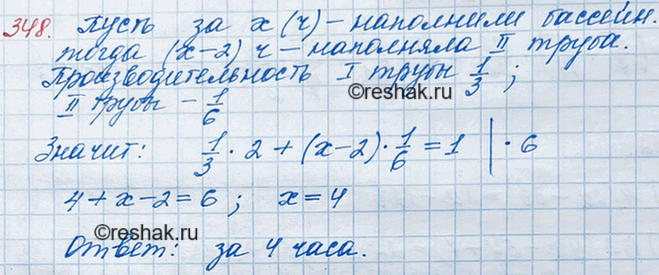 348. Пусть за х (ч) – наполнили бассейн.
тогда (х-2) ч – наполняла II труба.
Производительность I трубы 1/3 ;
II трубы – 1/6
©reshak.ru
Значит: 1/3 · 2 + (х-2) · 1/6 = 1 | · 6
4 + х - 2 = 6 ; х = 4
©reshak.ru
Ответ: за 4 часа.